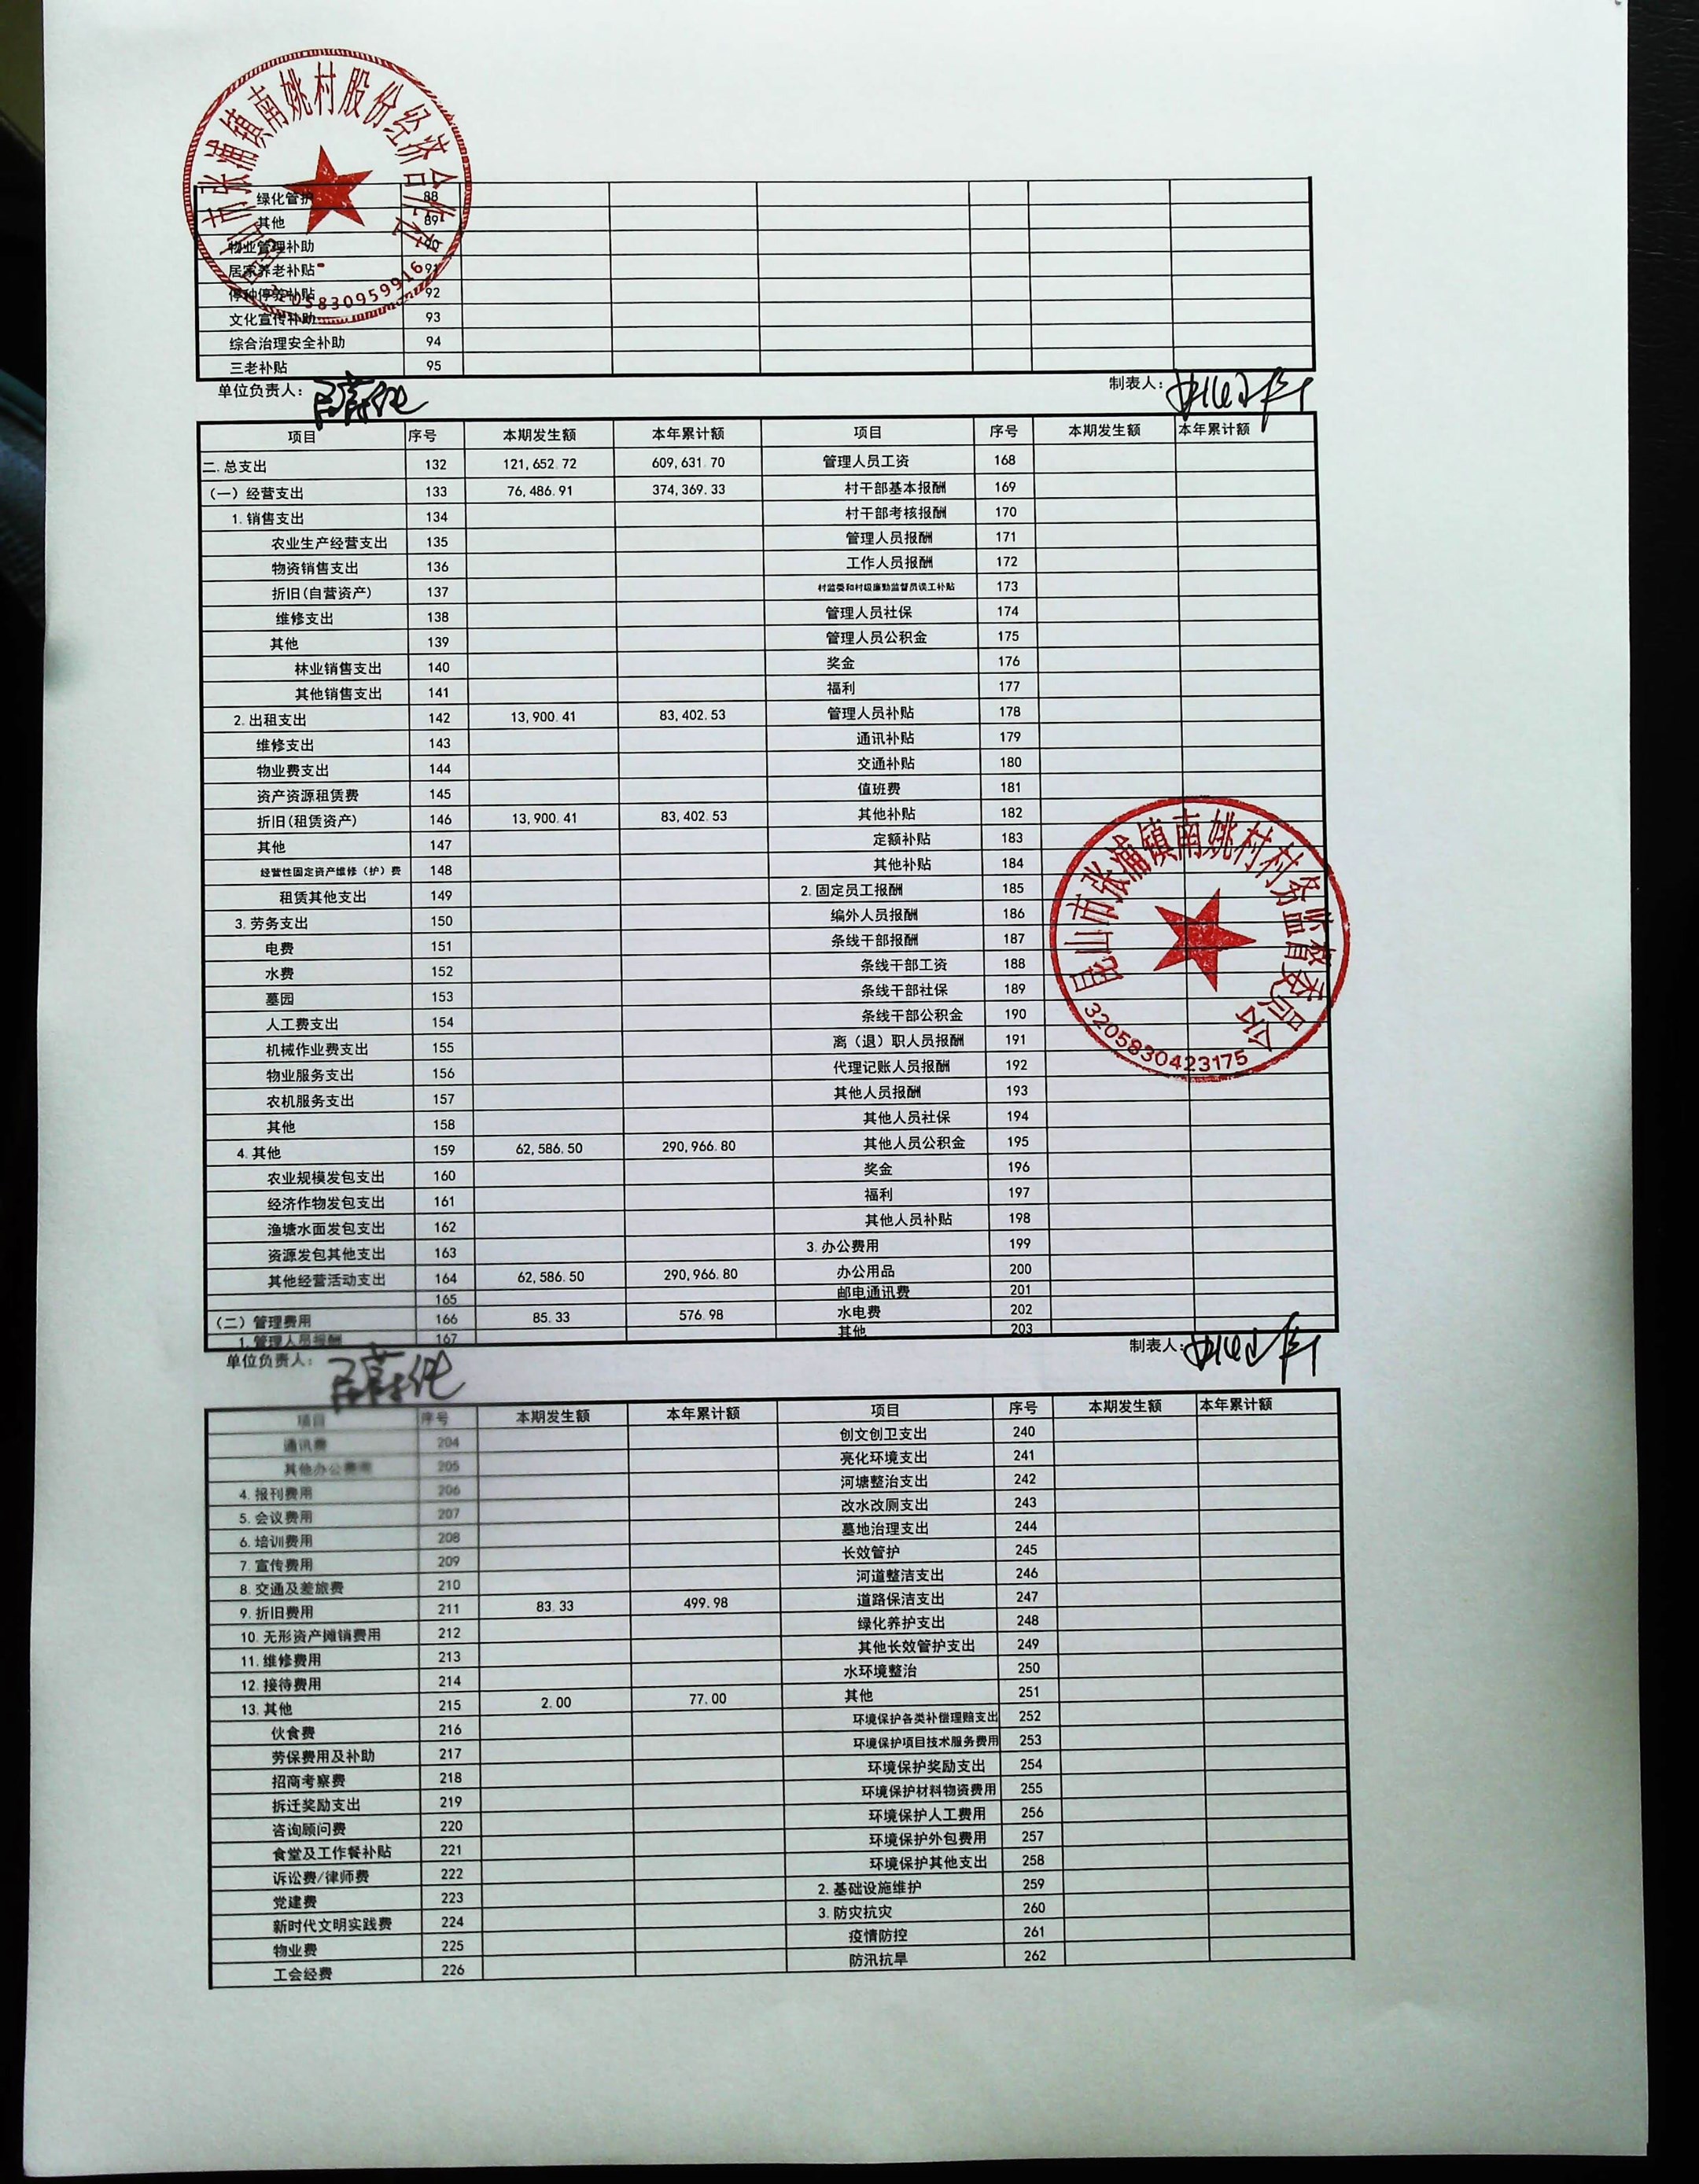 昆山市张浦镇南姚村股份经济合作社
绿化管护 88
其他 89
物业管理补助 90
居家养老补贴 91
停种停养补贴 92
3205830959916
文化宣传补助 93
综合治理安全补助 94
三老补贴 95
单位负责人： 制表人：
项目 序号 本期发生额 本年累计额 项目 序号 本期发生额 本年累计额
二.总支出 132 121,652.72 609,631.70 管理人员工资 168
（一）经营支出 133 76,486.91 374,369.33 村干部基本报酬 169
1.销售支出 134 村干部考核报酬 170
农业生产经营支出 135 管理人员报酬 171
物资销售支出 136 工作人员报酬 172
折旧(自营资产) 137 村监委和村级廉勤监督员误工补贴 173
维修支出 138 管理人员社保 174
其他 139 管理人员公积金 175
林业销售支出 140 奖金 176
其他销售支出 141 福利 177
2.出租支出 142 13,900.41 83,402.53 管理人员补贴 178
维修支出 143 通讯补贴 179
物业费支出 144 交通补贴 180
资产资源租赁费 145 值班费 181
折旧(租赁资产) 146 13,900.41 83,402.53 其他补贴 182
其他 147 定额补贴 183
经营性固定资产维修（护）费 148 其他补贴 184
租赁其他支出 149 2.固定员工报酬 185
3.劳务支出 150 编外人员报酬 186
电费 151 条线干部报酬 187
水费 152 条线干部工资 188
墓园 153 条线干部社保 189
人工费支出 154 条线干部公积金 190
机械作业费支出 155 离（退）职人员报酬 191
物业服务支出 156 代理记账人员报酬 192
农机服务支出 157 其他人员报酬 193
其他 158 其他人员社保 194
4.其他 159 62,586.50 290,966.80 其他人员公积金 195
农业规模发包支出 160 奖金 196
经济作物发包支出 161 福利 197
渔塘水面发包支出 162 其他人员补贴 198
资源发包其他支出 163 3.办公费用 199
其他经营活动支出 164 62,586.50 290,966.80 办公用品 200
165 邮电通讯费 201
（二）管理费用 166 85.33 576.98 水电费 202
1.管理人员报酬 167 其他 203
昆山市张浦镇南姚村村务监督委员会
3205830423175
单位负责人： 制表人：
项目 序号 本期发生额 本年累计额 项目 序号 本期发生额 本年累计额
通讯费 204 创文创卫支出 240
其他办公费用 205 亮化环境支出 241
4.报刊费用 206 河塘整治支出 242
5.会议费用 207 改水改厕支出 243
6.培训费用 208 墓地治理支出 244
7.宣传费用 209 长效管护 245
8.交通及差旅费 210 河道整洁支出 246
9.折旧费用 211 83.33 499.98 道路保洁支出 247
10.无形资产摊销费用 212 绿化养护支出 248
11.维修费用 213 其他长效管护支出 249
12.接待费用 214 水环境整治 250
13.其他 215 2.00 77.00 其他 251
伙食费 216 环境保护各类补偿理赔支出 252
劳保费用及补助 217 环境保护项目技术服务费用 253
招商考察费 218 环境保护奖励支出 254
拆迁奖励支出 219 环境保护材料物资费用 255
咨询顾问费 220 环境保护人工费用 256
食堂及工作餐补贴 221 环境保护外包费用 257
诉讼费/律师费 222 环境保护其他支出 258
党建费 223 2.基础设施维护 259
新时代文明实践费 224 3.防灾抗灾 260
物业费 225 疫情防控 261
工会经费 226 防汛抗旱 262